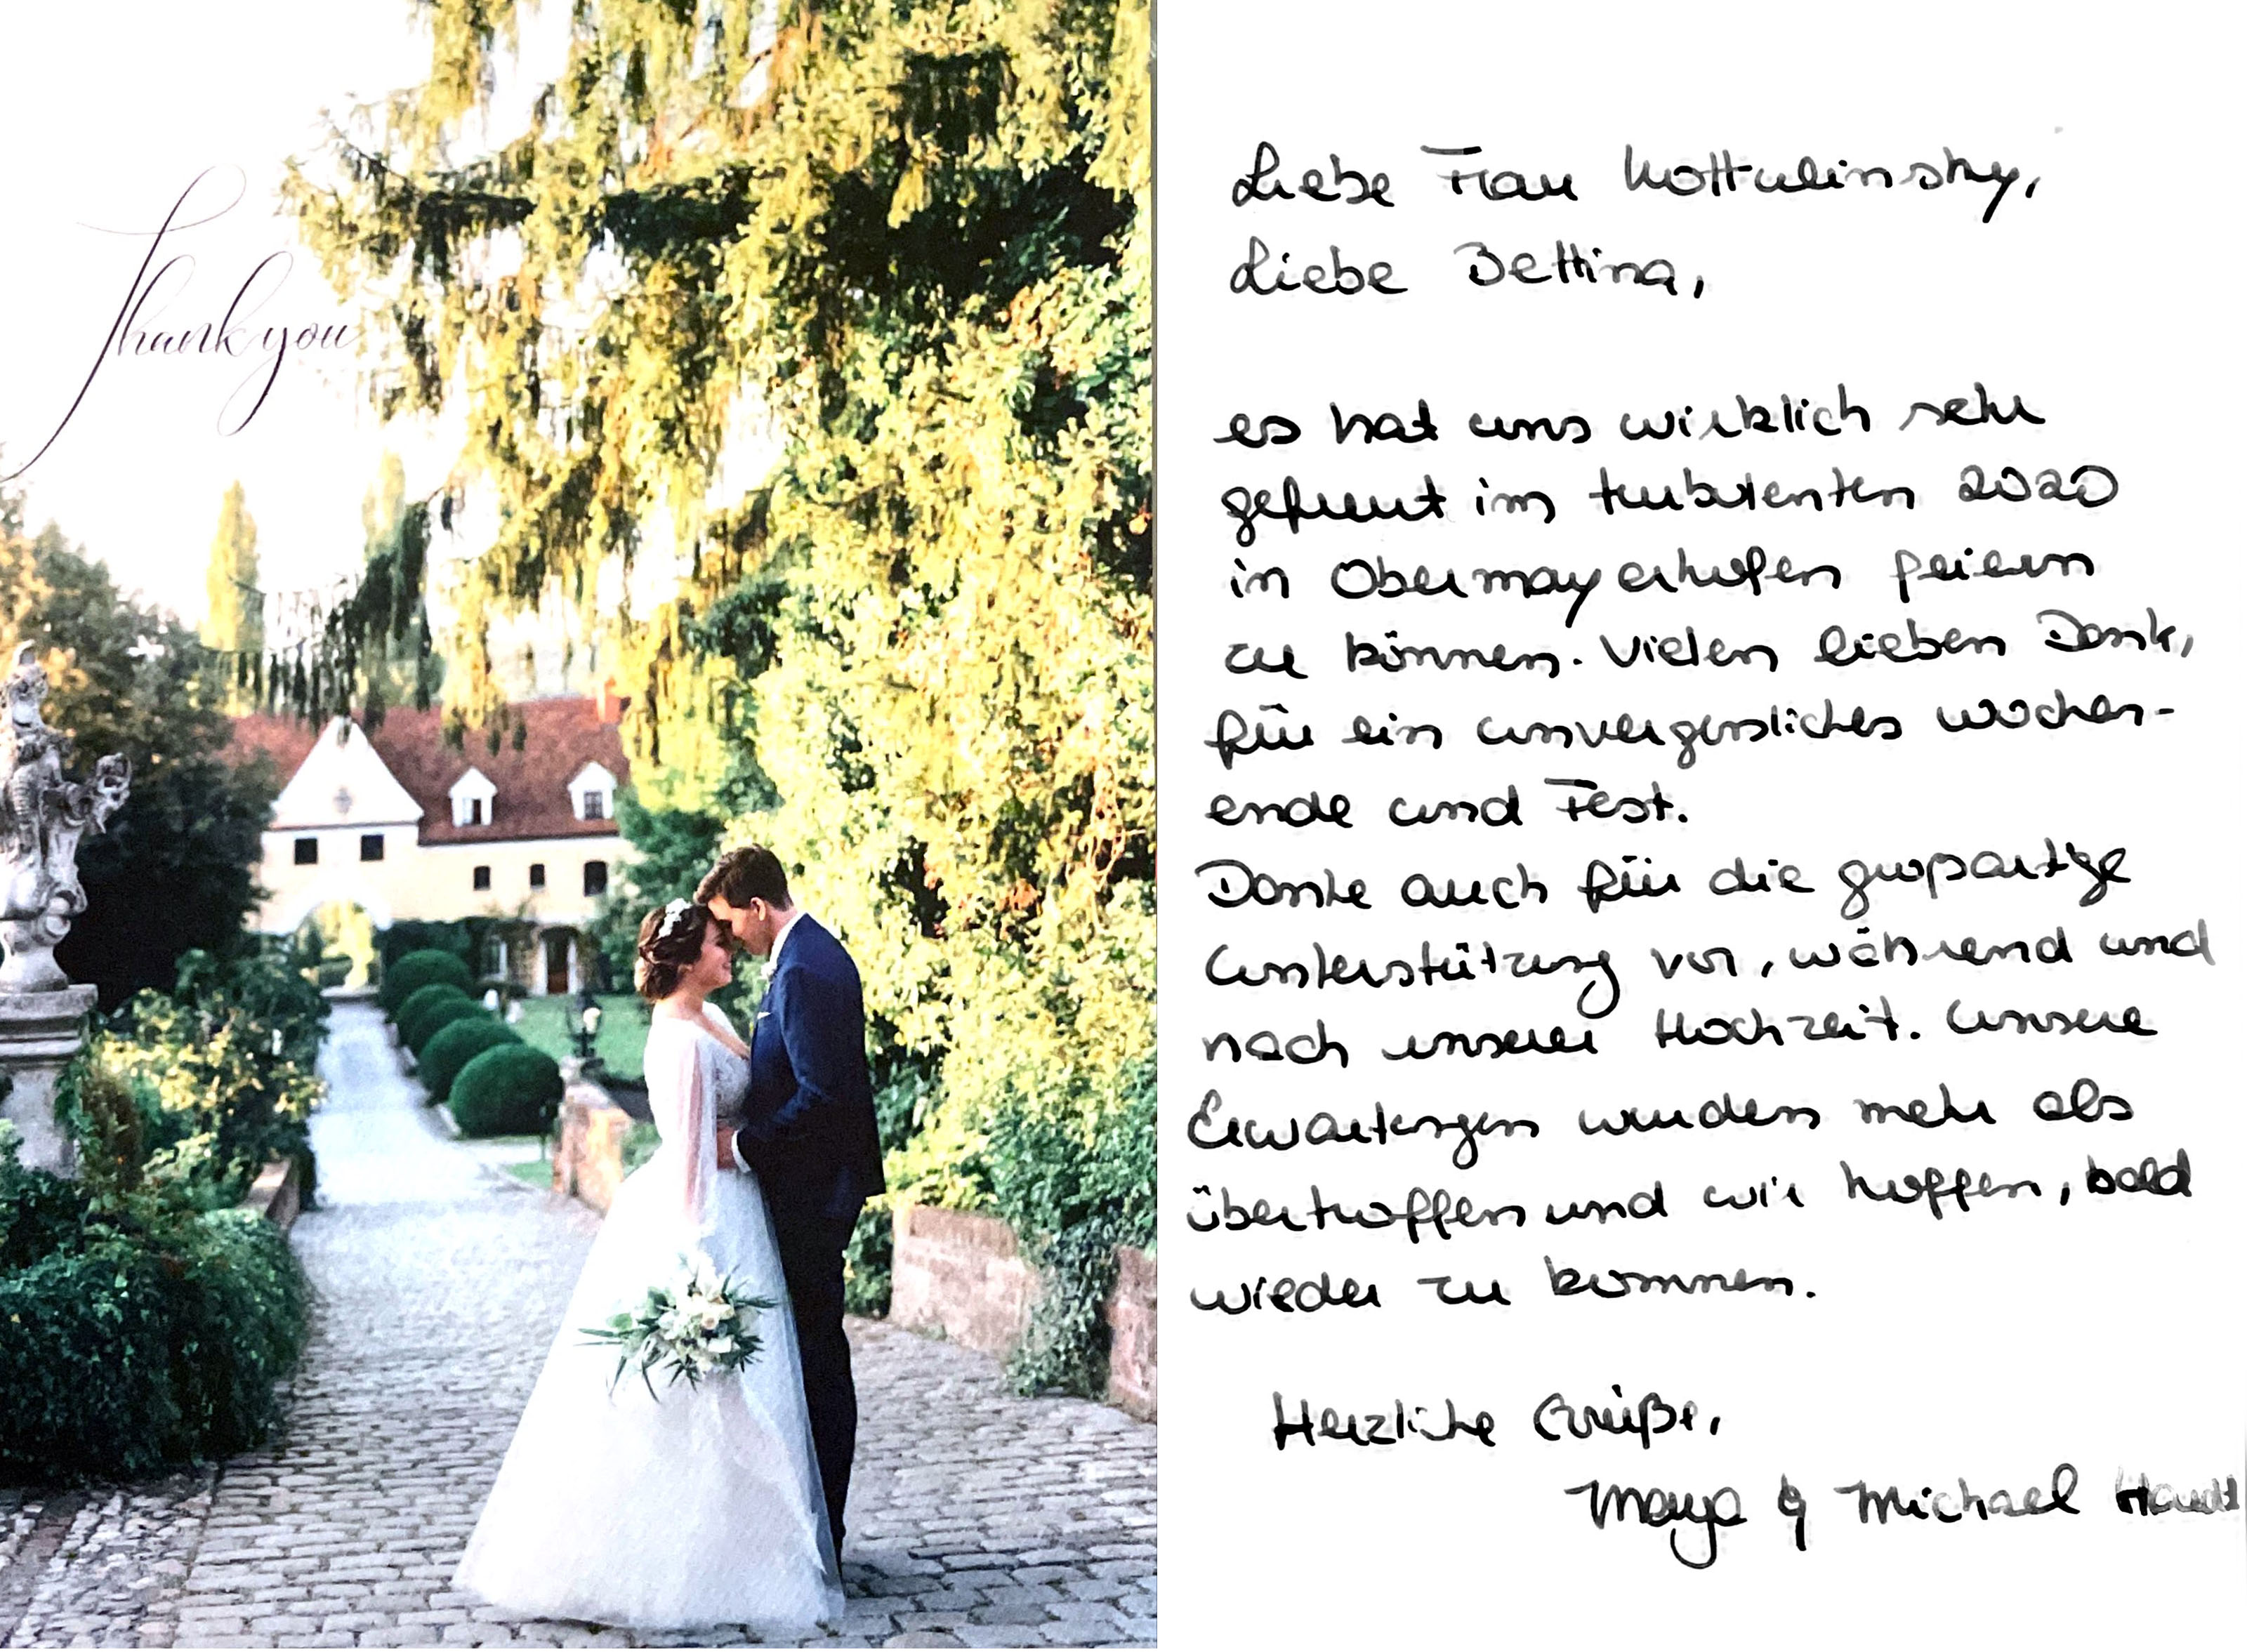 Thank you
Liebe Frau Kottulinsky,
Liebe Bettina,
es hat uns wirklich sehr
gefreut im turbulenten 2020
in Obermayerhofen feiern
zu können. Vielen lieben Dank,
für ein unvergessliches Wochen-
ende und Fest.
Danke auch für die großartige
Unterstützung vor, während und
nach unserer Hochzeit. Unsere
Erwartungen wurden mehr als
übertroffen und wir hoffen, bald
wieder zu kommen.
Herzliche Grüße,
Maya & Michael